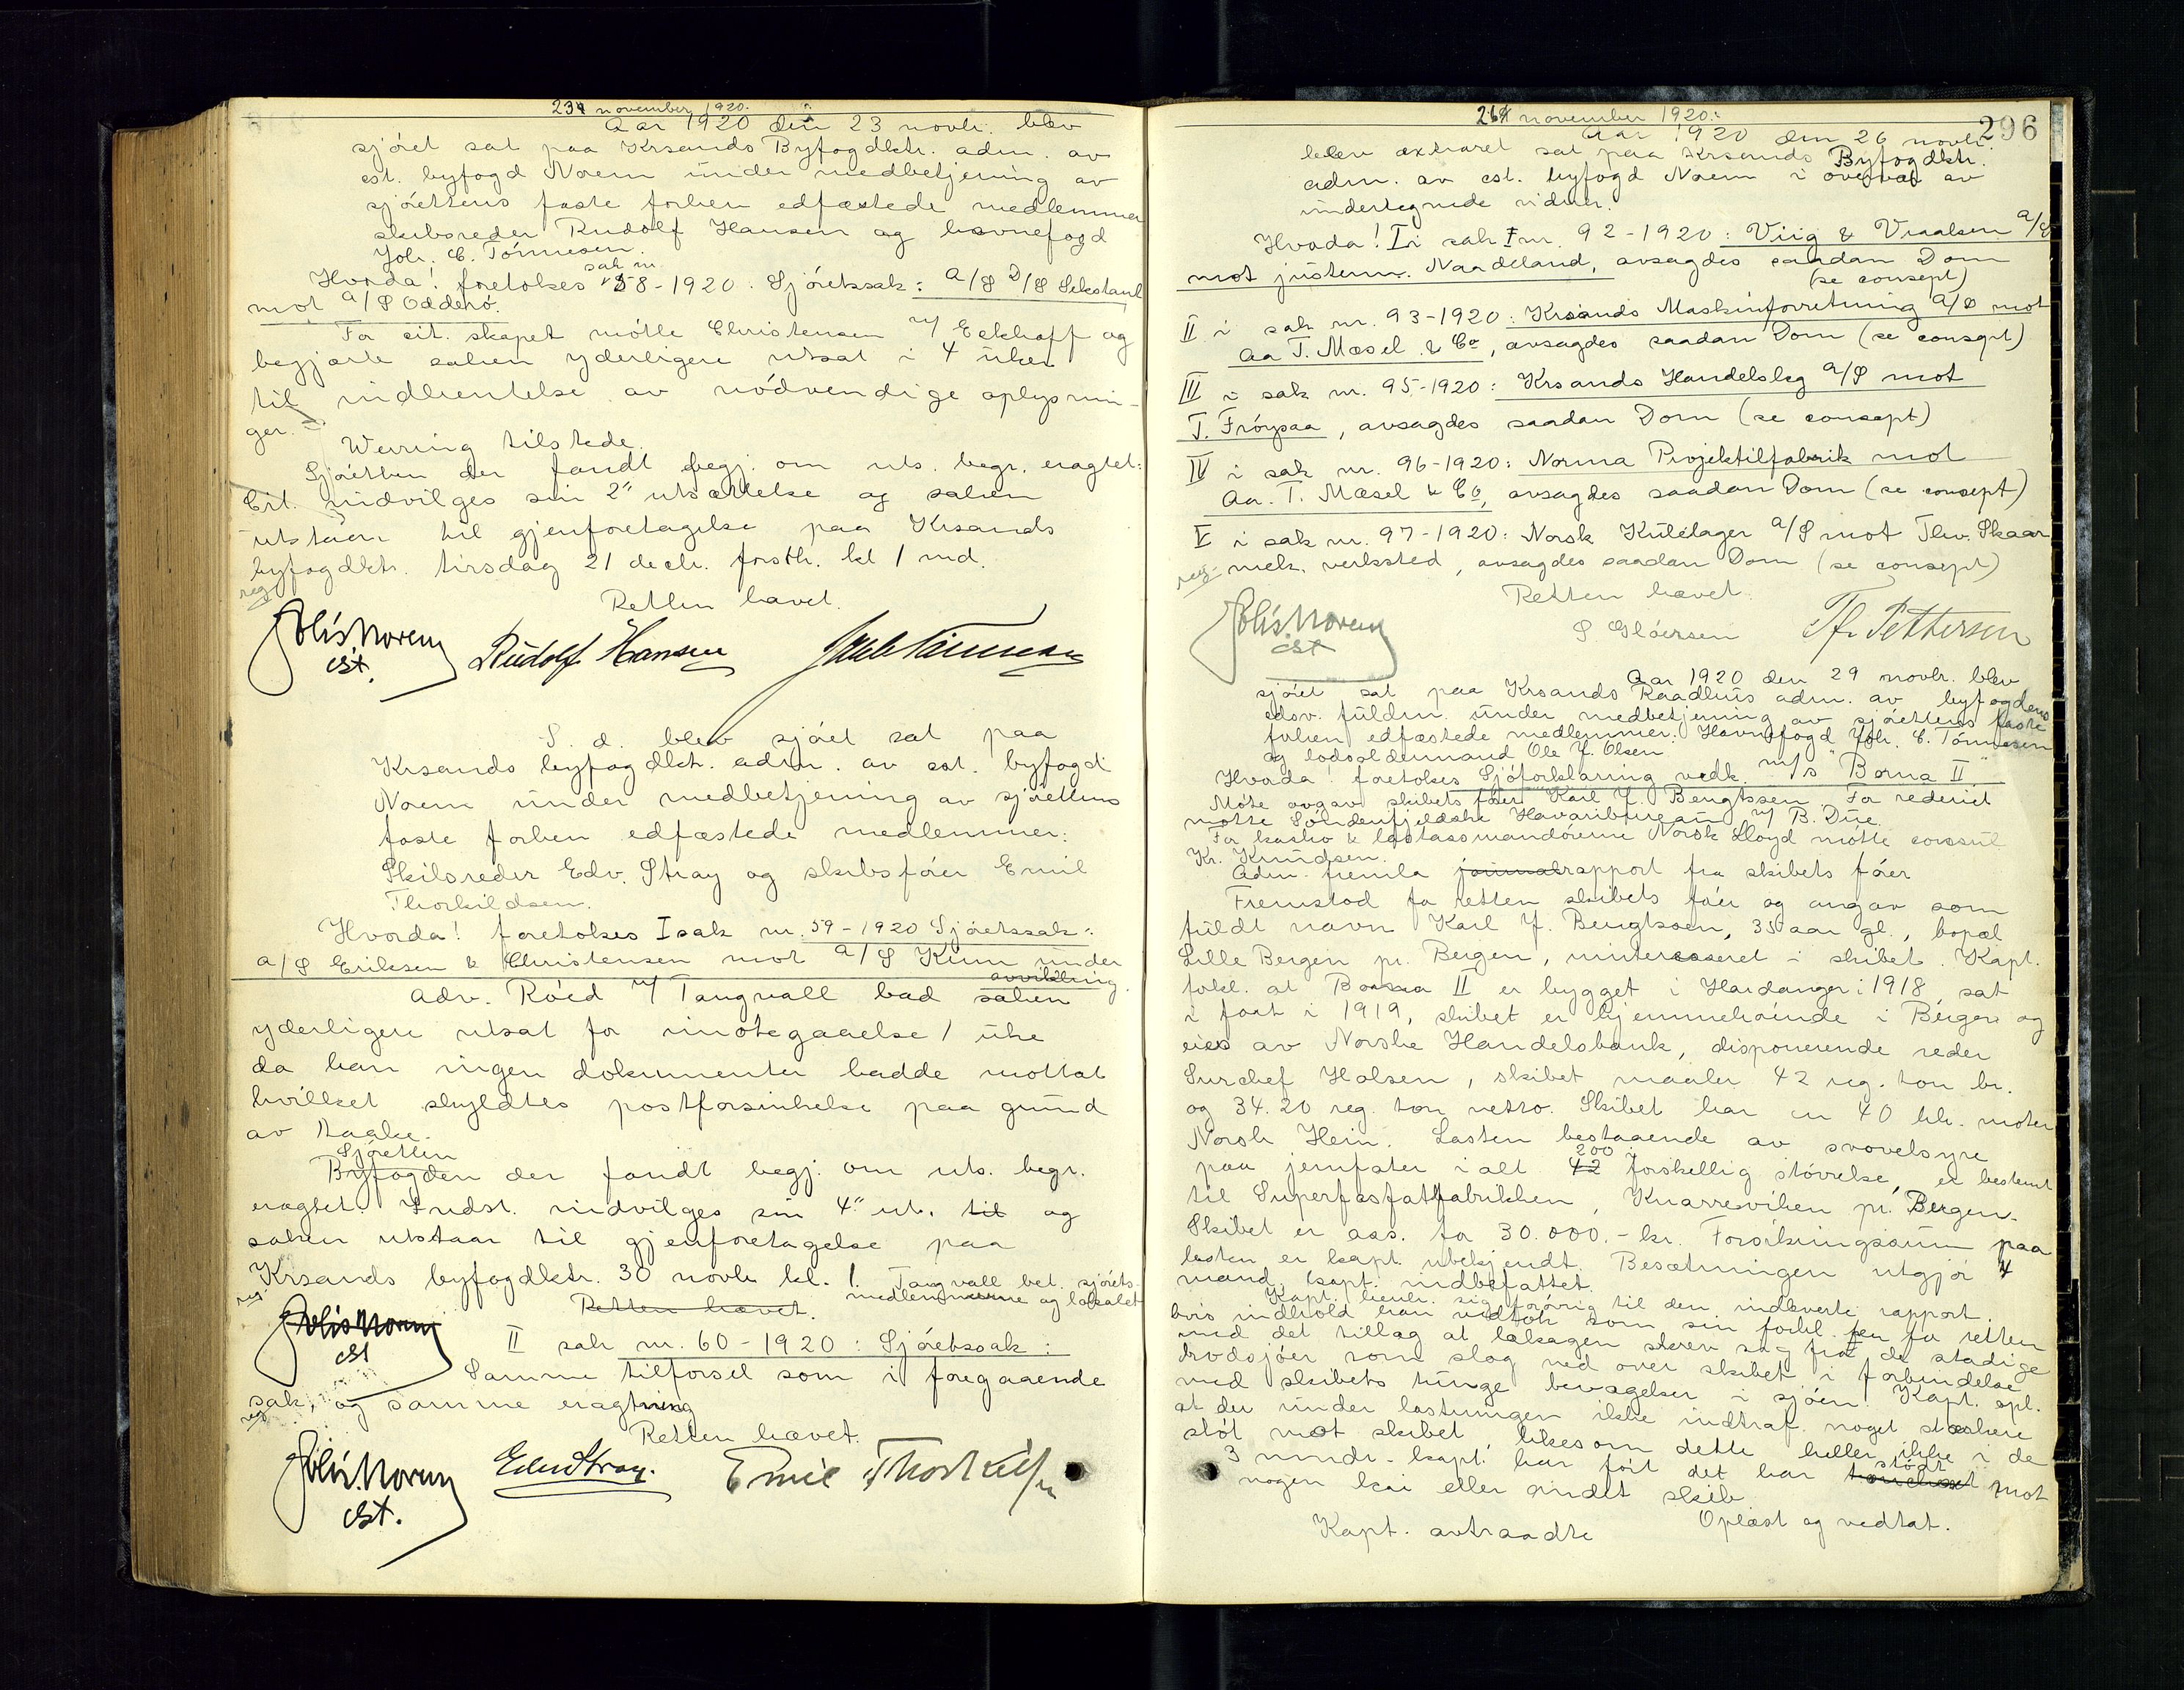 23 november 1920.
Aar 1920 den 23 novbr. blev
sjøret sat paa Krsands Byfogdktr. adm. av
cst. byfogd Noem under medbetjening av
sjørettens faste forhen edfæstede medlemmer
skibsreder Rudolf Hansen og havnefogd
Joh. C. Tönnesen.
Hvorda! foretokes sak nr. 58-1920. Sjöretssak: A/S D/S Sekstant
mot A/S Odderö.
For cit. skapet mötte Christensen v/ Eckhoff og
begjærte saken yderligere utsat i 4 uker
til indhentelse av nödvendige oplysnin-
ger.
Werring tilstede.
Sjöretten der fandt begj. om uts. begr. eragtet:
Cit. indvilges sin 2" utsættelse og saken
utstaar til gjenforetagelse paa Krsands
byfogdktr. tirsdag 21 decbr. førsth. kl 1 md.
reg.
Retten hævet.
cst. Rudolf Hansen
S. d. blev sjöret sat paa
Krsands byfogdktr. adm. av cst. byfogd
Noem under medbetjening av sjörettens
faste forhen edfæstede medlemmer:
Skibsreder Edv. Stray og skibsförer Emil
Thorkildsen.
Hvorda! foretokes I sak nr. 59-1920 Sjöretssak:
A/S Eriksen & Christensen mot A/S Kinn under
avvikling.
Adv. Röed v/ Tangvall bad saken
yderligere utsat for imötegaaelse 1 uke
da han ingen dokumenter hadde mottat
hvilket skyldtes postforsinkelse paa grund
av taake.
Sjöretten
Byfogden der fandt begj. om uts. begr.
eragtet: Indst. indvilges sin 4" uts. til og
saken utstaar til gjenforetagelse paa
Krsands byfogdktr. 30 novbr kl. 1. Tangvall bet. sjörets-
medlemmerne og lokalet
reg.
Retten hævet
cst
II sak nr. 60-1920: Sjöretssak:
Samme tilförsel som i foregaaende
sak, og samme eragtning
reg
Retten hævet.
cst. Edv Stray. Emil Thorkildsen
296
26 november 1920:
Aar 1920 den 26 novbr.
blev extraret sat paa Krsands Byfogdktr.
adm. av cst. byfogd Noem i overvær av
undertegnede vidner.
Hvorda! I i sak nr. 92-1920: Viig & Vraalsen A/S
mot justerm. Naadeland, avsagdes saadan Dom
(se consept)
II i sak nr. 93-1920: Krsands Maskinforretning A/S mot
Aa T. Mæsel & Co, avsagdes saadan Dom (se consept)
III i sak nr. 95-1920: Krsands Handelslag A/S mot
T. Fröysaa, avsagdes saadan Dom (se consept)
IV i sak nr. 96-1920: Norma Projektilfabrik mot
Aa. T. Mæsel & Co, avsagdes saadan Dom (se consept)
V i sak nr. 97-1920: Norsk Kulelager A/S mot Thv. Skaar
mek. verksted, avsagdes saadan Dom (se consept)
reg.
Retten hævet.
cst S Glöersen Th. Pettersen
Aar 1920 den 29 novbr. blev
sjöret sat paa Krsands Raadhus adm. av byfogdens
edsv. fuldm. under medbetjening av sjörettens faste
forhen edfæstede medlemmer: Havnefogd Joh. C. Tönnesen
og lodsoldermand Ole J. Olsen
Hvorda! foretokes Sjöforklaring vedk. m/s "Borna II"
Möte avgav skibets förer Karl J. Bengtsson. For rederiet
mötte Söndenfjeldske Havaribureau v/ B. Due.
For kasko & lastassurandörerne Norsk Lloyd mötte consul
Kr. Knudsen.
Adm. fremla journalrapport fra skibets förer
Fremstod for retten skibets förer og angav som
fuldt navn Karl J. Bengtsson, 35 aar gl., bopæl
Lille Bergen pr. Bergen, uinteresseret i skibet. Kapt.
forkl. at Borna II er bygget i Hardanger i 1918, sat
i fart i 1919, skibet er hjemmehörende i Bergen og
eies av Norske Handelsbank, disponerende reder
Surchef Halsen, skibet maaler 42 reg. ton br.
og 34.20 reg. ton netto. Skibet har en 40 hk. motor
Norsk Hein. Lasten bestaaende av svovelsyre
200
paa jernfater i alt 42 forskellig störrelse, er bestemt
til Superfosfatfabrikken, Knarreviken pr. Bergen.
Skibet er ass. for 30.000.- kr. Forsikringssum paa
lasten er kapt. ubekjendt. Besætningen utgjör 4
mand, kapt. indbefattet.
Kapt. henh. sig forövrig til den indleverte rapport
hvis indhold han vedtok som sin forkl. for retten
med det tillæg at lækagen skrev sig fra de stadige
brodsjöer som slog ned over skibet i forbindelse
med skibets tunge bevægelser i sjöen. Kapt. opl.
at der under lastningen ikke indtraf noget stærkere
stöt mot skibet, likesom dette heller ikke i de
3 mndr. kapt. har fört det har stödt mot
nogen kai eller andet skib.
Oplæst og vedtat.
Kapt. avtraadte